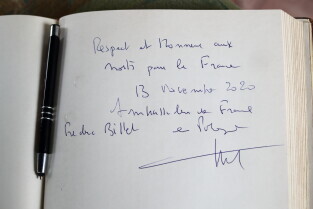 Respect et Honneur aux
morts pour la France
13 Novembre 2020
Ambassadeur de France
Frédéric Billet en Pologne